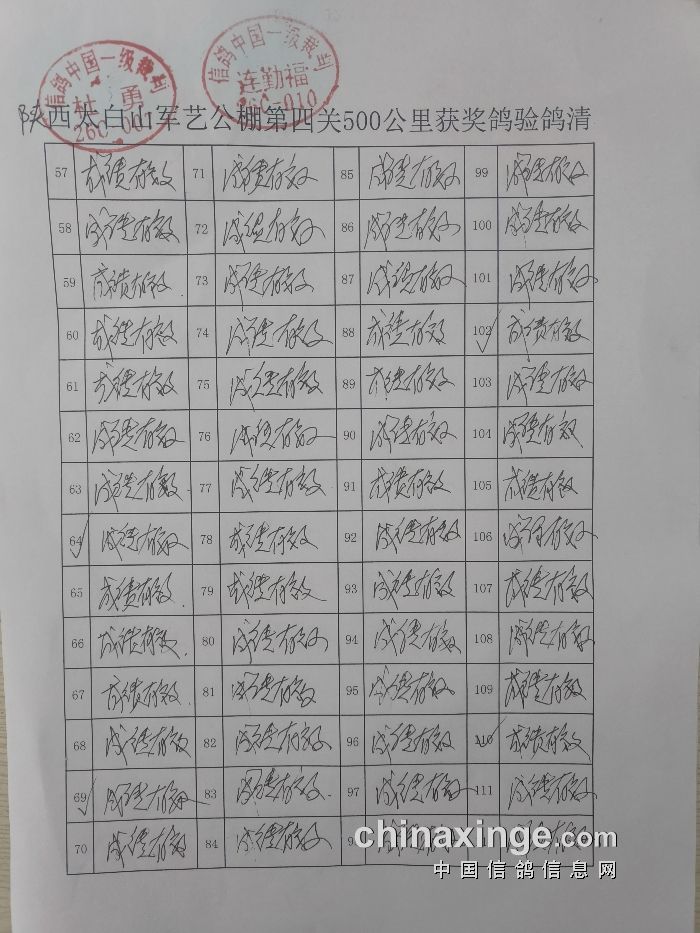 信鸽中国一级裁判
信鸽中国一级裁判
连勤福
杜勇
26C-010
陕西太白山军艺公棚第四关500公里获奖鸽验鸽清
57 成绩有效 71 成绩有效 85 成绩有效 99 成绩有效
58 成绩有效 72 成绩有效 86 成绩有效 100 成绩有效
59 成绩有效 73 成绩有效 87 成绩有效 101 成绩有效
60 成绩有效 74 成绩有效 88 成绩有效 102 成绩有效
61 成绩有效 75 成绩有效 89 成绩有效 103 成绩有效
62 成绩有效 76 成绩有效 90 成绩有效 104 成绩有效
63 成绩有效 77 成绩有效 91 成绩有效 105 成绩有效
64 成绩有效 78 成绩有效 92 成绩有效 106 成绩有效
65 成绩有效 79 成绩有效 93 成绩有效 107 成绩有效
66 成绩有效 80 成绩有效 94 成绩有效 108 成绩有效
67 成绩有效 81 成绩有效 95 成绩有效 109 成绩有效
68 成绩有效 82 成绩有效 96 成绩有效 110 成绩有效
69 成绩有效 83 成绩有效 97 成绩有效 111 成绩有效
70 成绩有效 84 成绩有效
chinaxinge.com
中国信鸽信息网